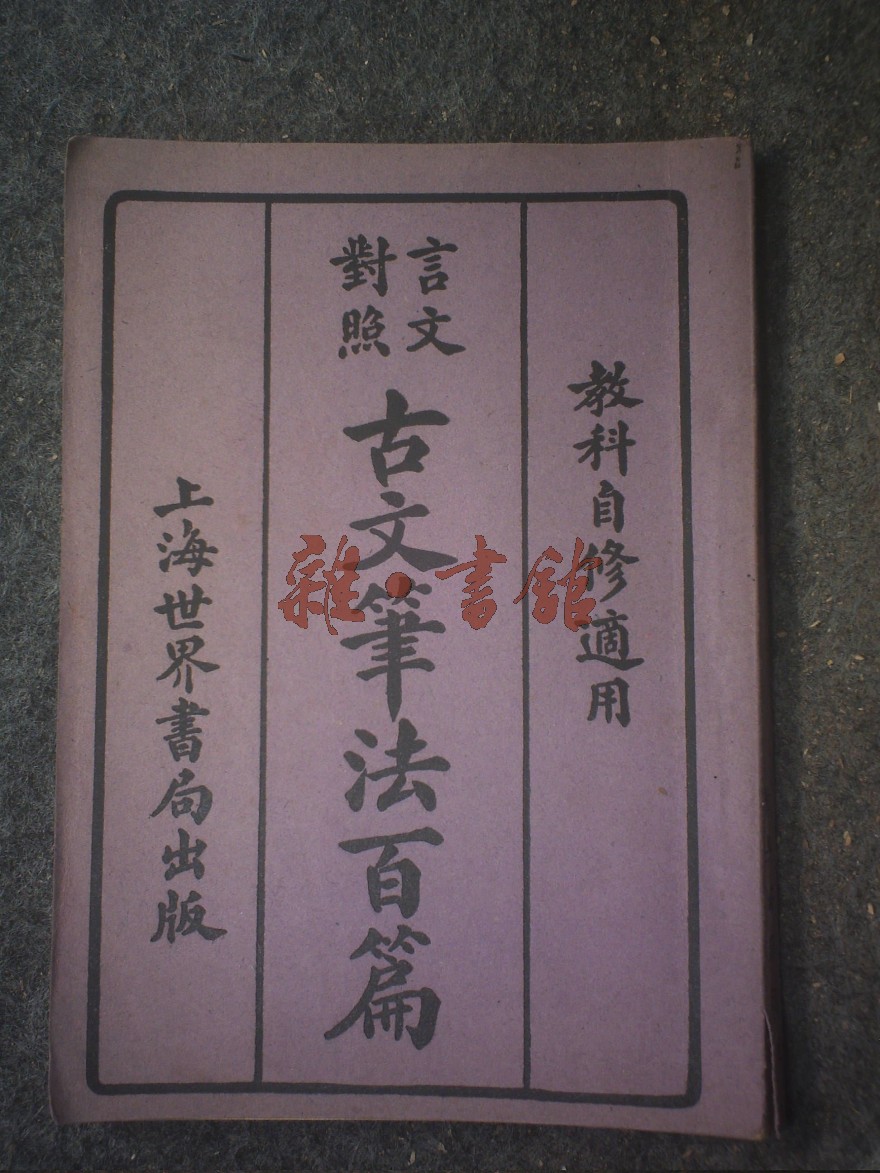 教科自修適用
言文
對照
古文筆法百篇
上海世界書局出版
雜·書館